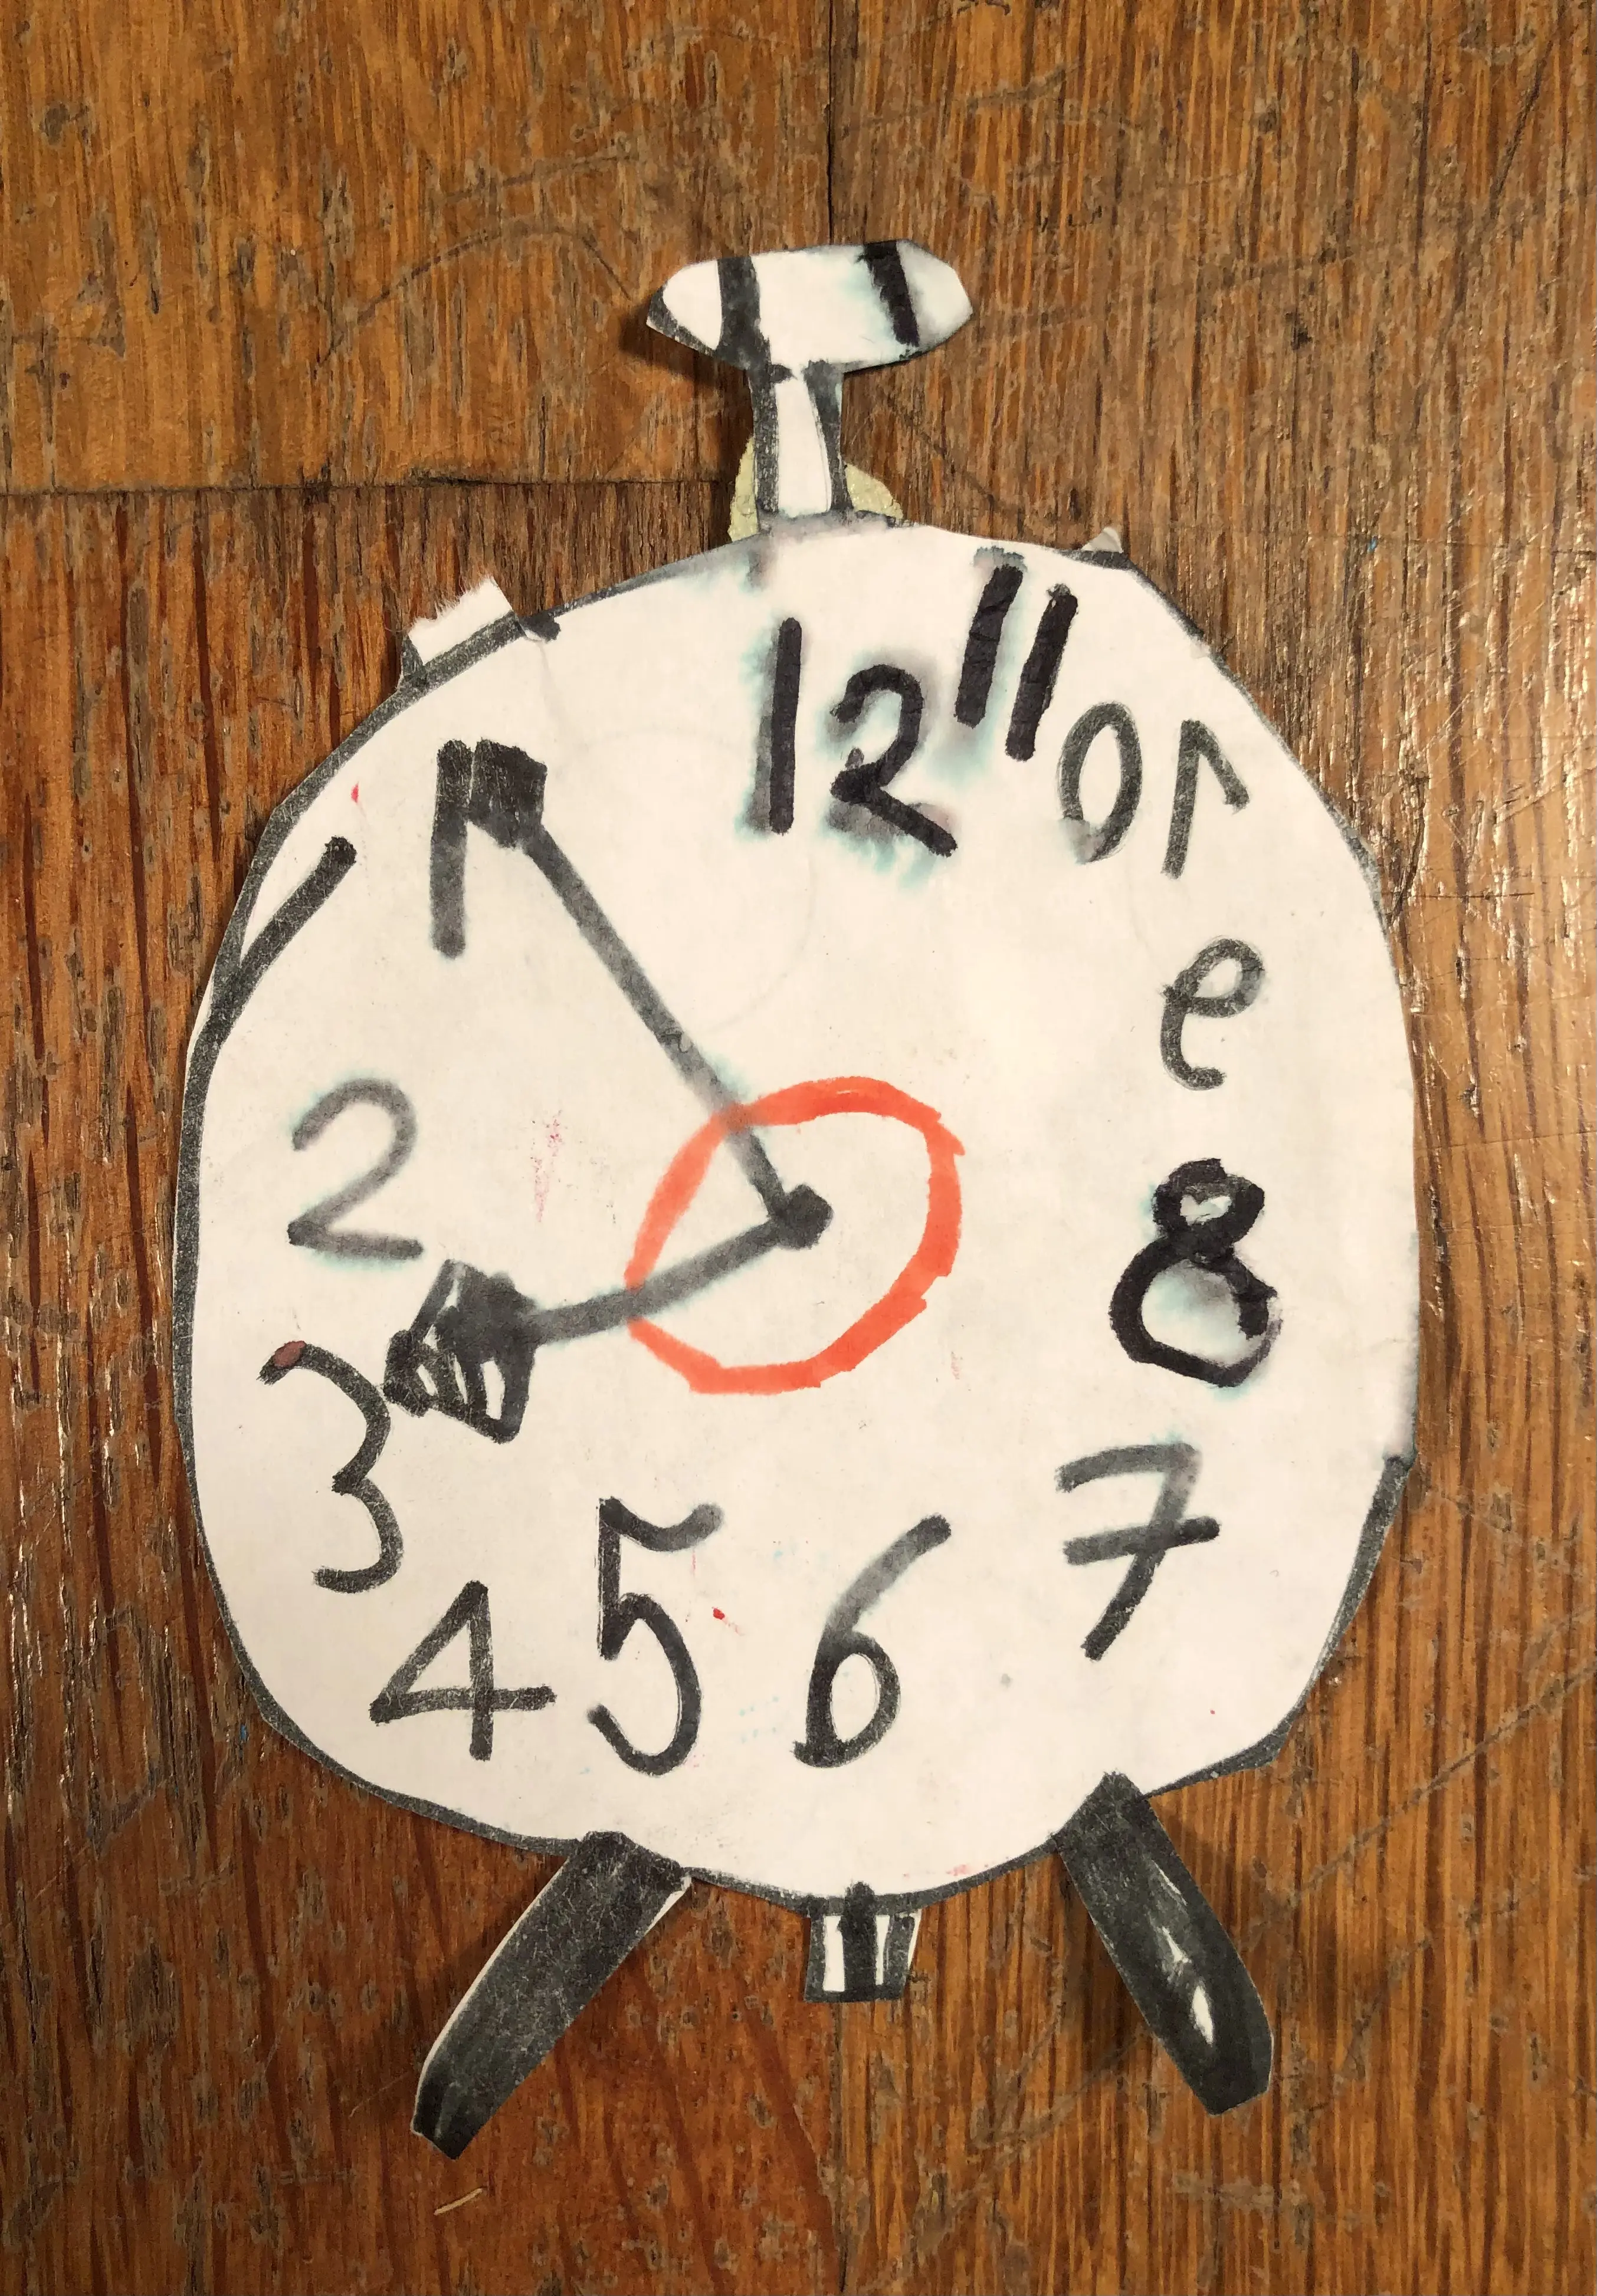 12
11
01
9
8
7
6
5
4
3
2
1